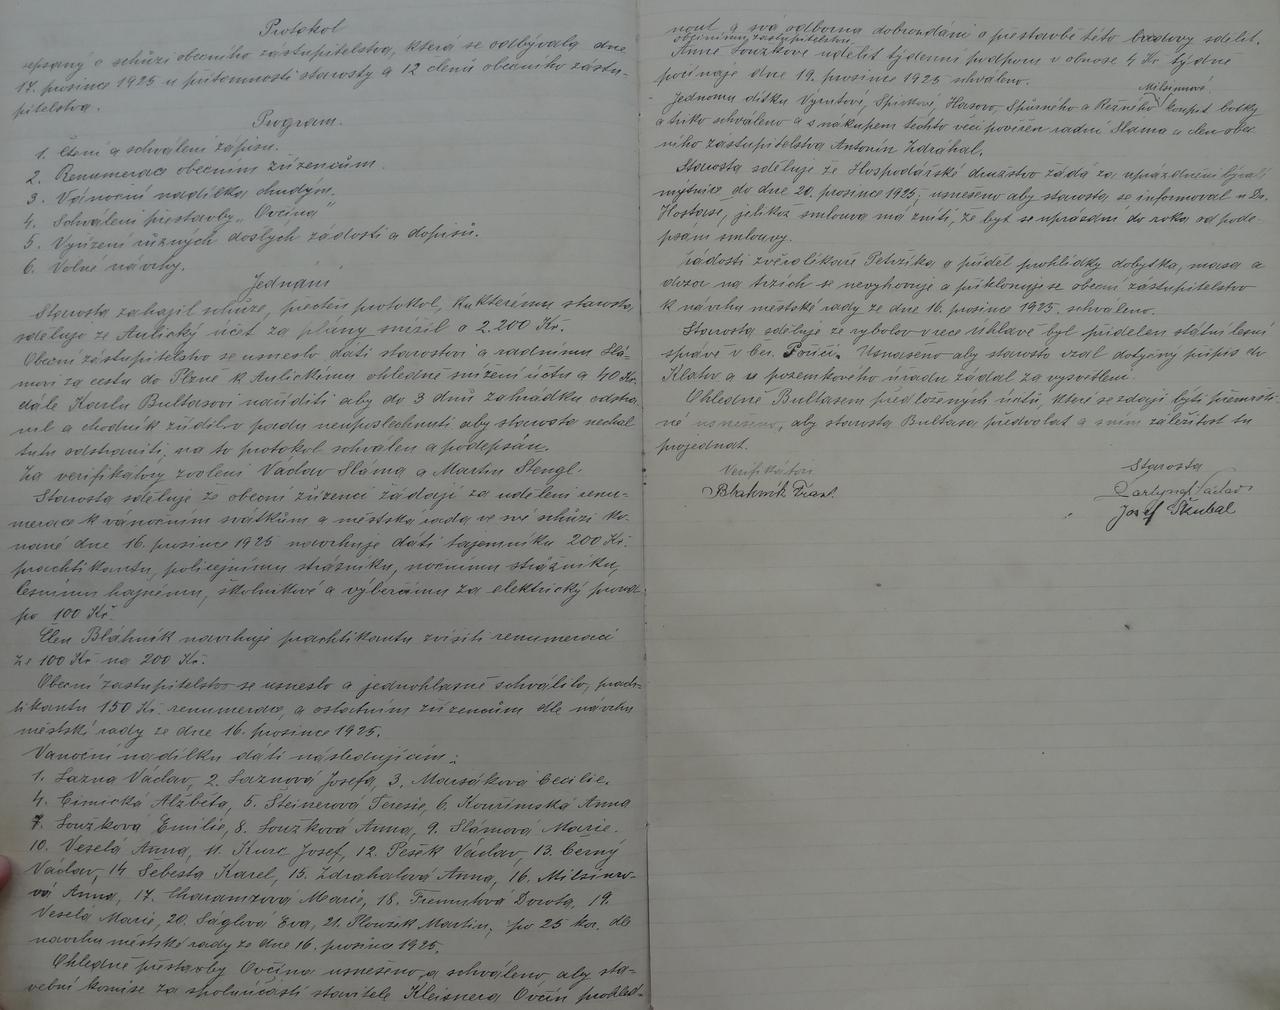 Protokol
sepsaný o schůzi obecního zastupitelstva, která se odbývala dne
17. prosince 1925 u přítomnosti starosty a 12 členů obecního zastu-
pitelstva.
Program.
1. Čtení a schválení zápisu.
2. Renumerace obecním zřízencům.
3. Vánoční nadílka chudým.
4. Schválení přestavby „Ovčína"
5. Vyřízení různých došlých žádostí a dopisů.
6. Volné návrhy.
Jednání
Starosta zahajil schůze, přečten protokol, ku kterému starosta
sděluje že Aulický účet za plány snížil o 2.200 Kč.
Obecní zastupitelstvo se usneslo dáti starostovi a radnímu Slá-
movi za cestu do Plzně k Aulickému ohledně snížení účtu a 40 Kč.
dále Karlu Bultasovi naříditi aby do 3 dnů zahrádku odstra
nil a chodník zřídil v pádu neuposlechnutí aby starosta nechal
tutu odstraniti, na to protokol schválen a podepsán.
Za verifikátory zvoleni Václav Sláma a Martin Stengl.
Starosta sděluje že obecní zřízenci žádají za udělení renu-
merace k vánočním svátkům a městská rada ve své schůzi ko-
nané dne 16. prosince 1925 navrhuje dáti tajemníku 200 Kč.
prachtikantu, policejnímu strážníku, nočnímu strážníku,
lesnímu hajnému, školníkové a výběrčímu za elektrický proud
po 100 Kč.
Člen Bláhník navrhuje prachtikantu zvýšiti renumeraci
ze 100 Kč na 200 Kč.
Obecní zastupitelstvo se usneslo a jednohlasně schválilo, prach-
tikantu 150 Kč. renumerace, a ostatním zřízencům dle návrhu
městské rady ze dne 16. prosince 1925.
Vanoční nadílku dáti následujícím:
1. Lazna Václav, 2. Laznová Josefa, 3. Marsáková Cecilie.
4. Cimická Alžběta, 5. Steinerová Teresie, 6. Kouřimská Anna
7. Loužková Emilie, 8. Loužková Anna, 9. Slámová Marie.
10. Veselá Anna, 11. Kurc Josef, 12. Pešek Václav, 13. Černý
Václav, 14 Šebesta Karel, 15. Zdrahalová Anna, 16. Milsimro-
vá Anna, 17. Charamzová Marie, 18. Dorota, 19.
Veselá Marie, 20. Ságlová Eva, 21. Ploužek Martin, po 25 kor. dle
návrhu městské rady ze dne 16. prosince 1925.
Ohledně přestavby Ovčína usneseno a schváleno, aby sta-
vební komise za spoluúčasti stavitele Kleisnera Ovčín prohléd-
nout a svá odborná dobrozdání o přestavbě této budovy sdělit.
obecnímu zastupitelstvu
Anně Loužkové udělit týdenní podporu v obnose 4 Kč týdně
počínaje dne 19. prosince 1925 schváleno.
Milsimrové.
Jednomu dítku Vyrutové, Spirkové, Hasovo, Spurného a Rezného koupit botky
a tuto schváleno a s nákupem těchto věcí pověřen radní Sláma a člen obec
ního zastupitelstva Antonín Zdráhal.
Starosta sděluje že Hospodářské družstvo žádá za uprázdnění bývalé
mýtnice do dne 20. prosince 1925; usneseno aby starosta se informoval u Dr.
Hostaše, jelikož smlouva má zníti, že byt se uprázdní do roka od pode-
psání smlouvy.
Žádosti zvěrolékaře Petržíka o příděl prohlídky dobytka, masa a
dozor na trzích se nevyhovuje a přiklonuje se obecní zastupitelstvo
k návrhu městské rady ze dne 16. prosince 1925. schváleno.
Starosta sděluje že rybolov v řece Úhlavě byl přidělen státní lesní
správě v Poříčí. Usnešeno aby starosta vzal dotyčný přípis do
Klatov a u pozemkového úřadu žádal za vysvětlení.
Ohledně Bultasem předložených účtů, které se zdají býti přemrště-
né usneseno, aby starosta Bultasa předvolat a s ním záležitost tu
projednat.
Verifikátoři
Starosta
Blahník
Václav
Josef Škubal